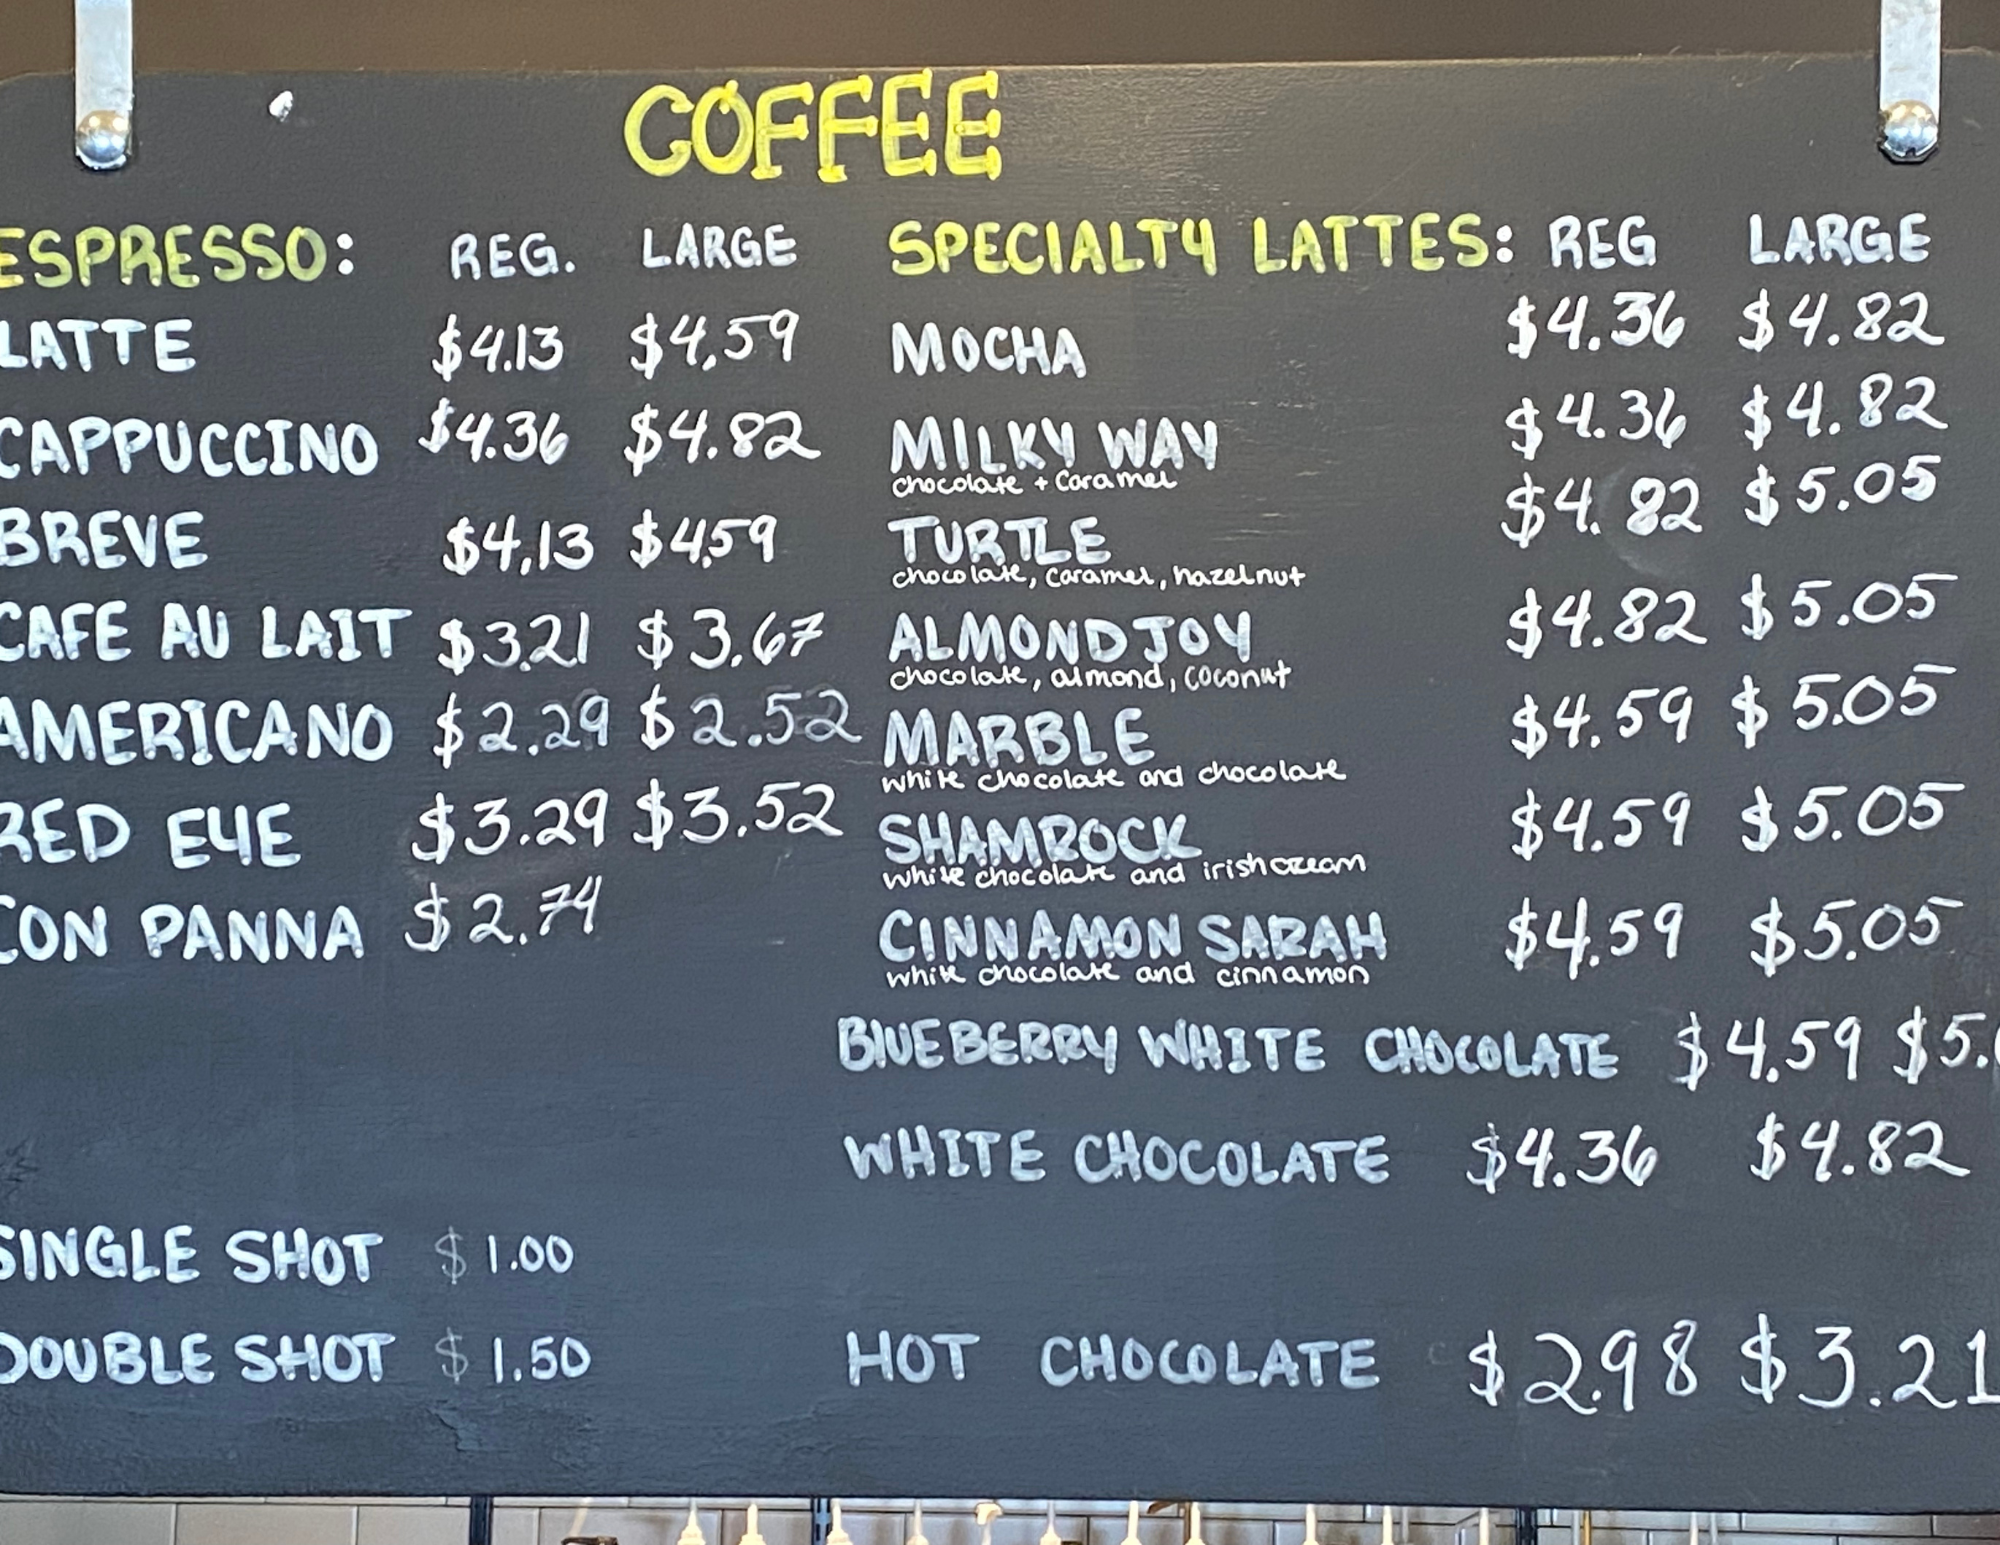 COFFEE
ESPRESSO: REG. LARGE
LATTE $4.13 $4.59
CAPPUCCINO $4.36 $4.82
BREVE $4.13 $4.59
CAFE AU LAIT $3.21 $3.67
AMERICANO $2.29 $2.52
RED EYE $3.29 $3.52
CON PANNA $2.74
SINGLE SHOT $1.00
DOUBLE SHOT $1.50
SPECIALTY LATTES: REG LARGE
MOCHA $4.36 $4.82
MILKY WAY $4.36 $4.82
chocolate + caramel
TURTLE $4.82 $5.05
chocolate, caramel, hazelnut
ALMOND JOY $4.82 $5.05
chocolate, almond, coconut
MARBLE $4.59 $5.05
white chocolate and chocolate
SHAMROCK $4.59 $5.05
white chocolate and irish cream
CINNAMON SARAH $4.59 $5.05
white chocolate and cinnamon
BLUEBERRY WHITE CHOCOLATE $4.59 $5.
WHITE CHOCOLATE $4.36 $4.82
HOT CHOCOLATE $2.98 $3.21